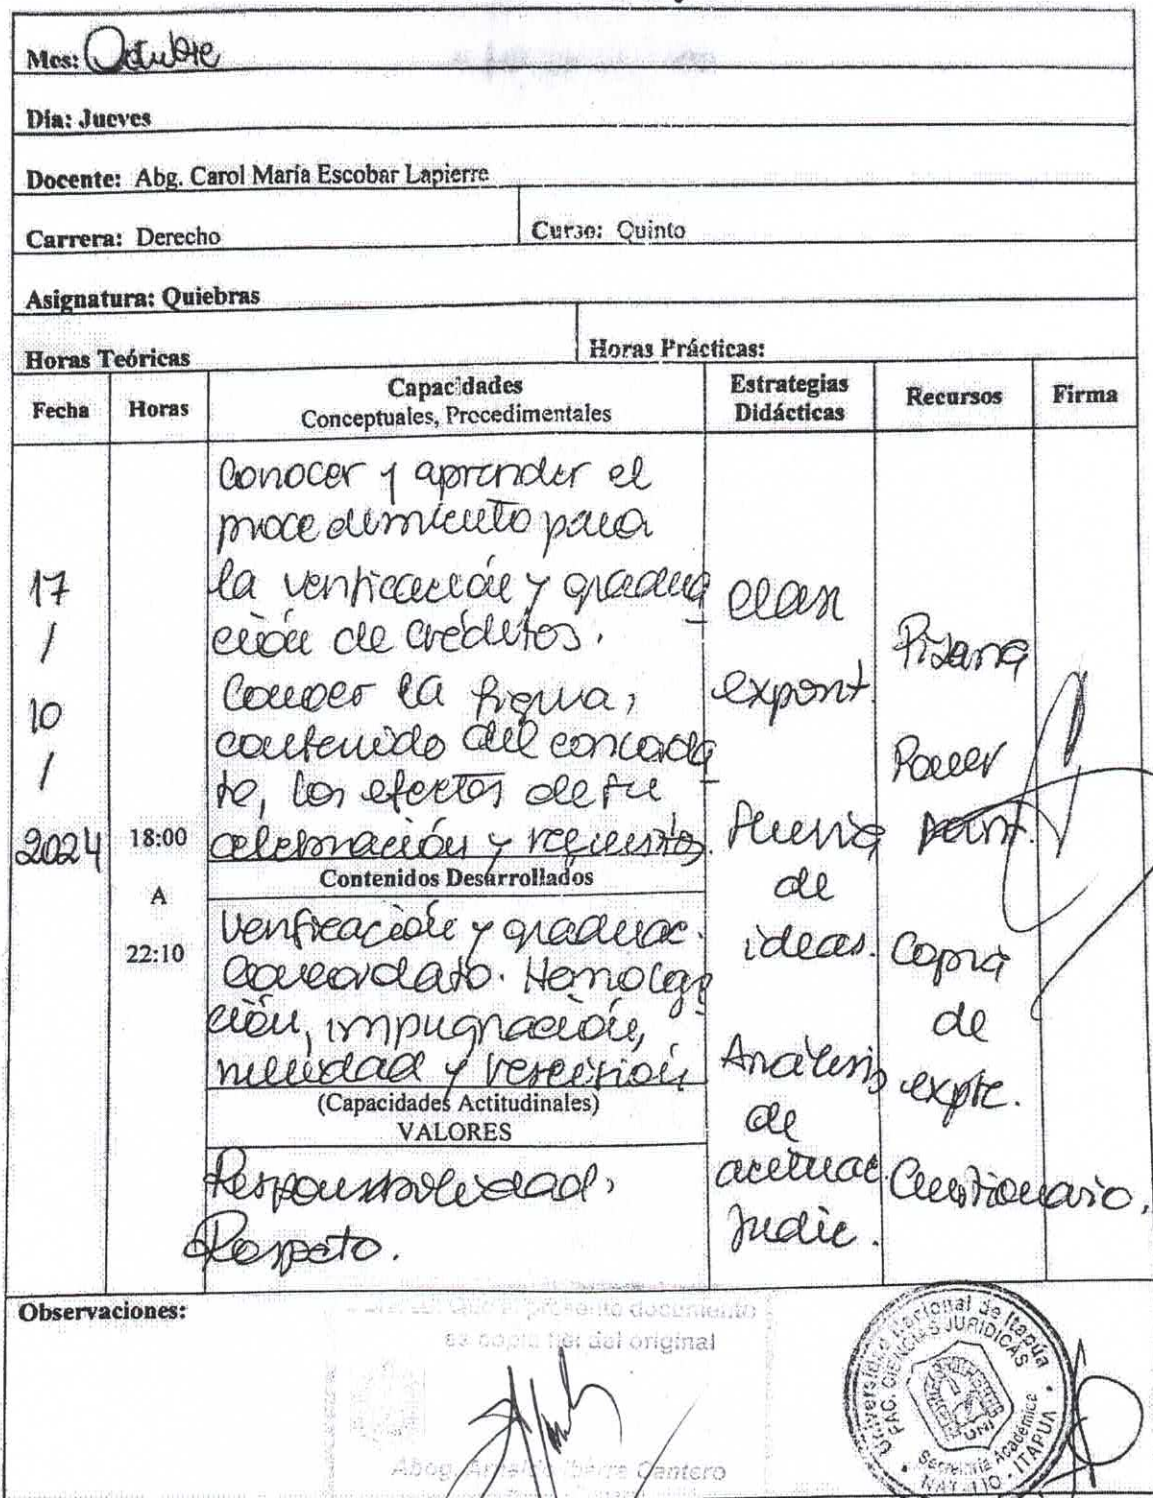 Mes: Octubre
Día: Jueves
Docente: Abg. Carol María Escobar Lapierre
Carrera: Derecho
Curso: Quinto
Asignatura: Quiebras
Horas Teóricas
Horas Prácticas:
Fecha
Horas
Capacidades
Conceptuales, Procedimentales
Estrategias
Didácticas
Recursos
Firma
17
/
10
/
2024
18:00
A
22:10
Conocer y aprender el
procedimiento para
la verificación y gradua_
ción de créditos.
Conocer la figura,
contenido del concorda_
to, los efectos de su
celebración y requisitos.
Contenidos Desarrollados
Verificación y graduac.
Concordato. Homologa
ción, impugnación,
nulidad y rescisión
(Capacidades Actitudinales)
VALORES
Responsabilidad,
Respeto.
clase
exposit.
lluvia
de
ideas.
Análisis
de
actuac.
Judic.
Pizarra
Power
point.
Copia
de
expte.
Cuestionario.
Observaciones:
Que el presente documento
es copia fiel del original
Abog. Arnaldo Ibarra Cantero
Universidad Nacional de Itapúa
FAC. CIENCIAS JURIDICAS
UNI
Secretaría Académica
ITAPUA